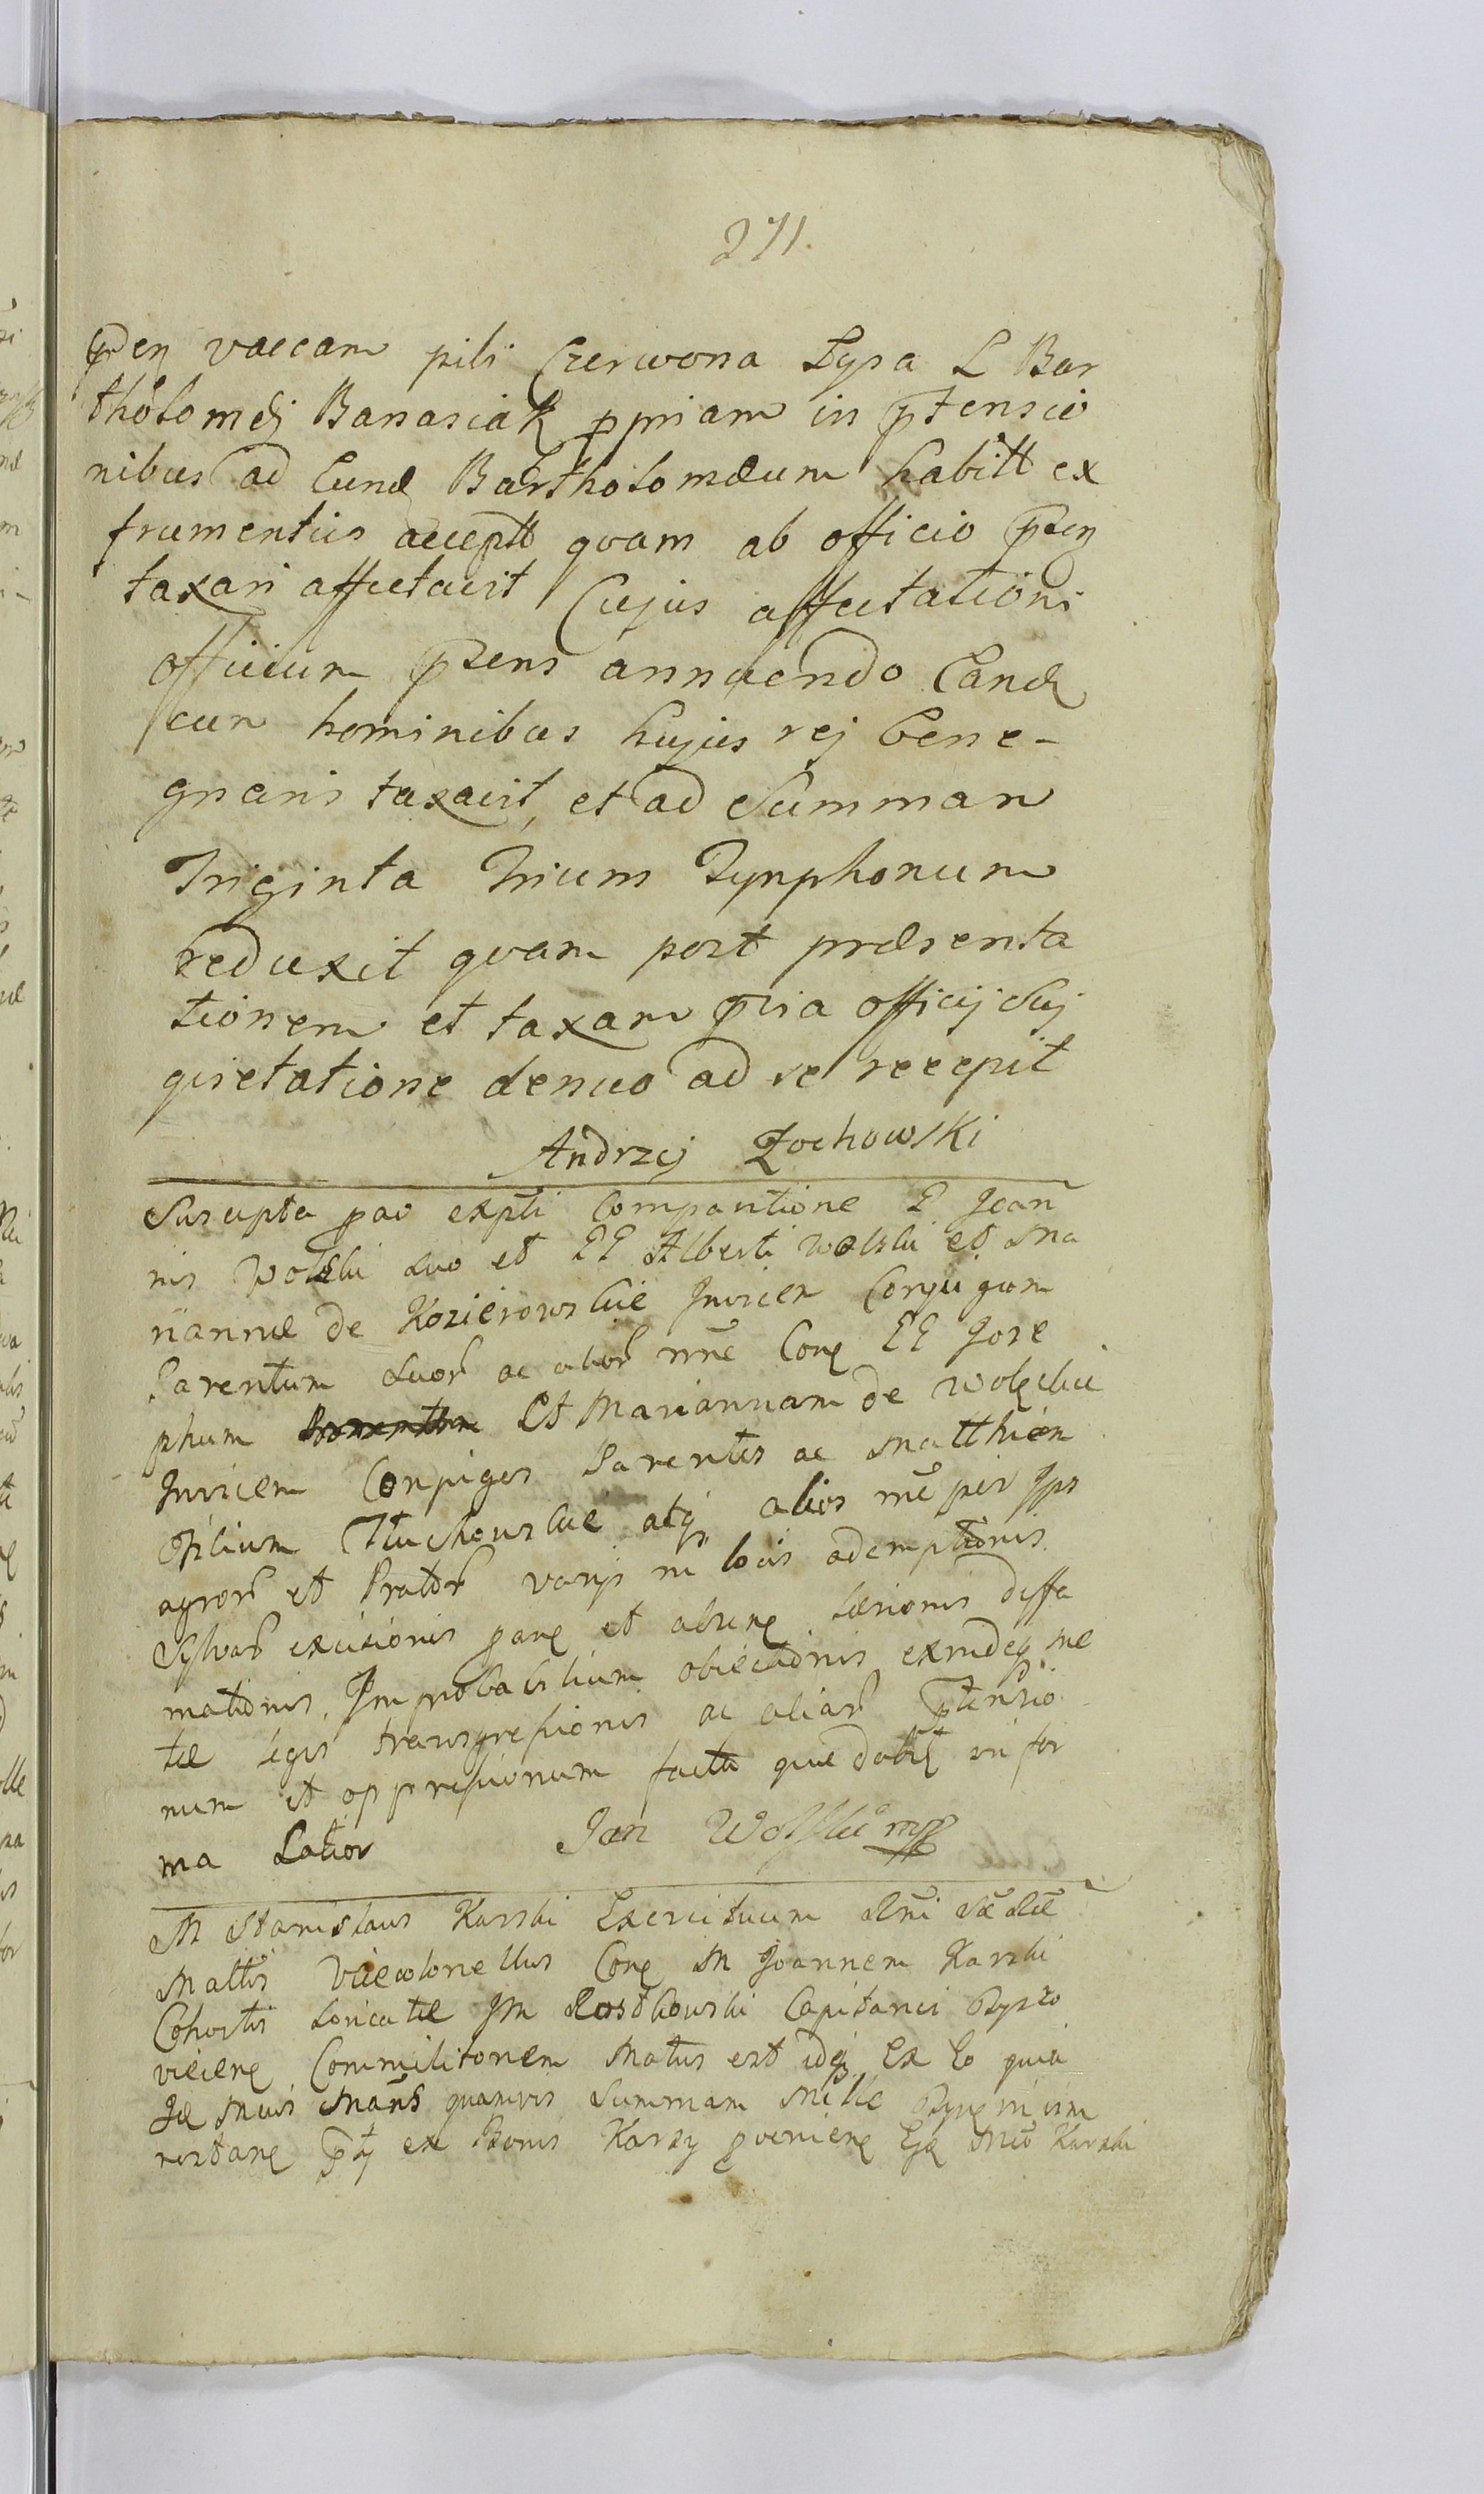 271.
p̄den vaccam pili Czerwona Łysa L Bar
tholomei Banasiak ppriam in p̄tensio
nibus ad Eund Bartholomæum habitt ex
frumentiis accptt quam ab officio p̄ten
taxari affectavit Cujus affectationi
officium p̄sens annuendo Eand
cum hominibus hujus rej bene-
gnaris taxavit, et ad Summam
Triginta Trium Tynphonum
reduxit quam post præsenta
tionem et taxam p̄via officij Suj
qvietatione denuo ad se recepit
Andrzej Żochowski
Suscepta p̄ao expti Comparitione L Joan
nis Wolski suo et LL Alberti Wolski et Ma
riannæ de Kozierowskie Invicem Conjugum
Parentum suor ac alior nne Con LL Jose
phum Et Mariannam de Wolskie
Invicem Conjuges Parentes ac Matthiam
Filium Tłuchowskie atq alios nne per Ips
agror et Prator varijs in locis ademptionis
Sylvar excisionis et abinn læsionis diffa
mationis, Improbabilium obiectionis exindeq me
tæ legis transgressionis ac aliar p̄tensio
num et oppressionum facta quæ dabit in for
ma Latior
Jan Wolski mp
M Stanislaus Karski Exercituum Rni
Mattis Vicecolonellus Con M Joannem Karski
Cohortis Loricatæ JM Rostkowski Capitanei Ryszo
vicien Commilitonem Motus est idq Ex Eo quia
Jd Mus quamvis Summam Mille
restan ex Bonis Karzy pvenien Ejd Mco Karski